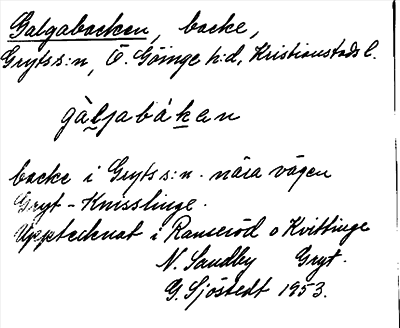 Galgabacken, backe,
Gryts s:n, Ö. Göinge h:d, Kristianstads l.
gàljabákan
backe i Gryts s:n nära vägen
Gryt - Knisslinge.
Upptecknat i Ranseröd o Kvittinge
N. Sandby Gryt.
G. Sjöstedt 1953.